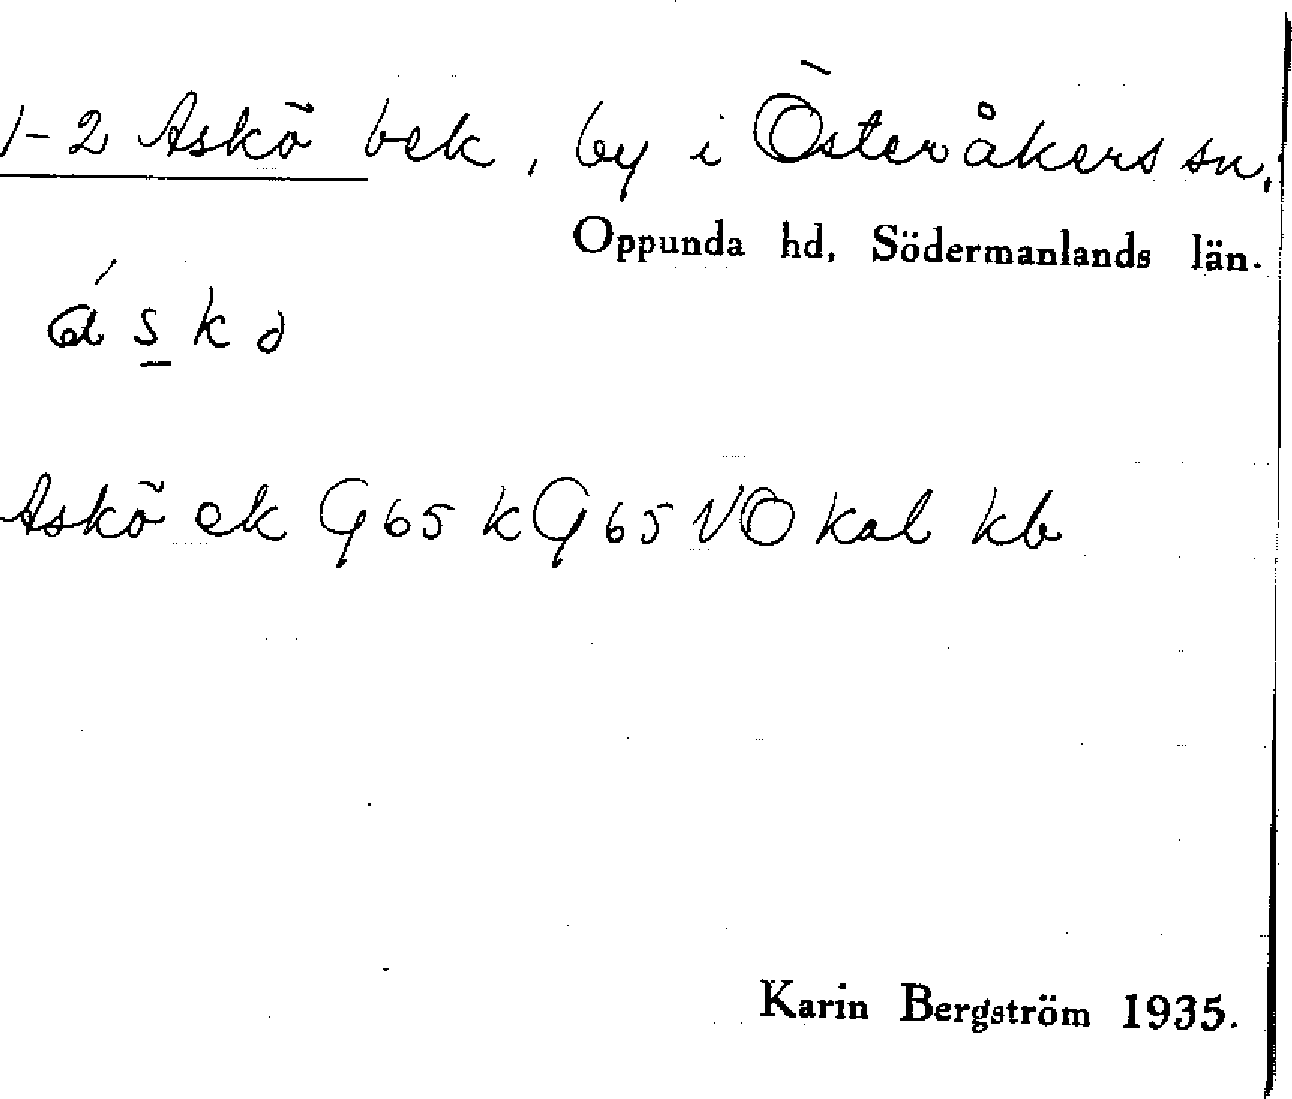 1-2 Askö bek, by i Österåkers sn.
Oppunda hd, Södermanlands län.
á s k ə
Askö ek G65 kG65 VO kal kb
Karin Bergström 1935.